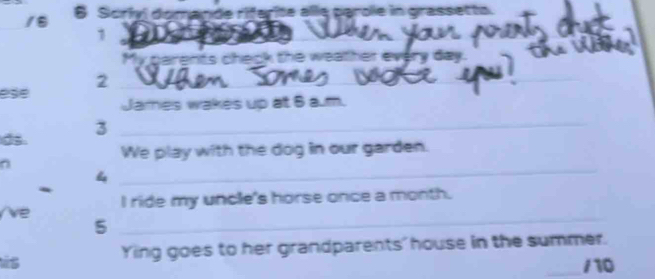 /6 6 Scrivi domande riferite alle parole in grassetto.
1 When your parents chet the Wother?
My parents check the weather every day.
2 When Jomes woke up?
ese
James wakes up at 6 a.m.
3
ds.
We play with the dog in our garden.
n
4
I ride my uncle's horse once a month.
've
5
Ying goes to her grandparents' house in the summer.
his
/10